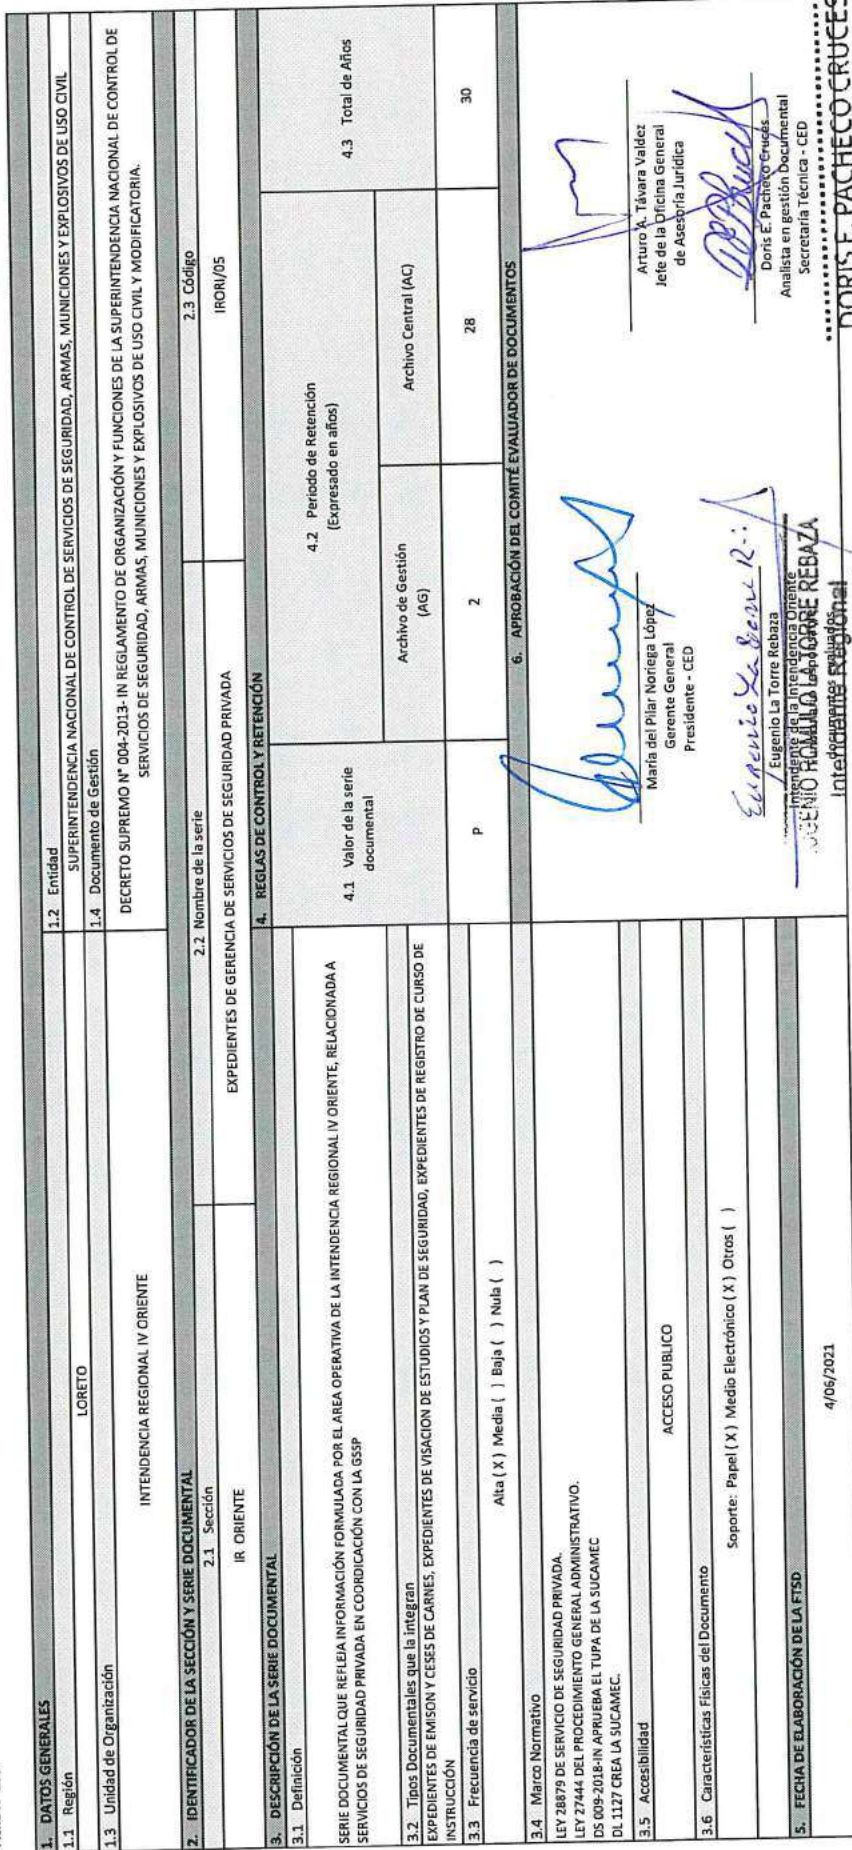 1. DATOS GENERALES
1.1 Región
LORETO
1.2 Entidad
SUPERINTENDENCIA NACIONAL DE CONTROL DE SERVICIOS DE SEGURIDAD, ARMAS, MUNICIONES Y EXPLOSIVOS DE USO CIVIL
1.3 Unidad de Organización
INTENDENCIA REGIONAL IV ORIENTE
1.4 Documento de Gestión
DECRETO SUPREMO N° 004-2013- IN REGLAMENTO DE ORGANIZACIÓN Y FUNCIONES DE LA SUPERINTENDENCIA NACIONAL DE CONTROL DE
SERVICIOS DE SEGURIDAD, ARMAS, MUNICIONES Y EXPLOSIVOS DE USO CIVIL Y MODIFICATORIA.
2. IDENTIFICADOR DE LA SECCIÓN Y SERIE DOCUMENTAL
2.1 Sección
IR ORIENTE
2.2 Nombre de la serie
EXPEDIENTES DE GERENCIA DE SERVICIOS DE SEGURIDAD PRIVADA
2.3 Código
IRORI/05
3. DESCRIPCIÓN DE LA SERIE DOCUMENTAL
3.1 Definición
SERIE DOCUMENTAL QUE REFLEJA INFORMACIÓN FORMULADA POR EL AREA OPERATIVA DE LA INTENDENCIA REGIONAL IV ORIENTE, RELACIONADA A
SERVICIOS DE SEGURIDAD PRIVADA EN COORDICACIÓN CON LA GSSP
3.2 Tipos Documentales que la integran
EXPEDIENTES DE EMISON Y CESES DE CARNES, EXPEDIENTES DE VISACION DE ESTUDIOS Y PLAN DE SEGURIDAD, EXPEDIENTES DE REGISTRO DE CURSO DE
INSTRUCCIÓN
3.3 Frecuencia de servicio
Alta ( X ) Media ( ) Baja ( ) Nula ( )
3.4 Marco Normativo
LEY 28879 DE SERVICIO DE SEGURIDAD PRIVADA.
LEY 27444 DEL PROCEDIMIENTO GENERAL ADMINISTRATIVO.
DS 009-2018-IN APRUEBA EL TUPA DE LA SUCAMEC
DL 1127 CREA LA SUCAMEC.
3.5 Accesibilidad
ACCESO PUBLICO
3.6 Características Físicas del Documento
Soporte: Papel ( X ) Medio Electrónico ( X ) Otros ( )
5. FECHA DE ELABORACIÓN DE LA FTSD
4/06/2021
4. REGLAS DE CONTROL Y RETENCIÓN
4.1 Valor de la serie
documental
4.2 Periodo de Retención
(Expresado en años)
4.3 Total de Años
Archivo de Gestión
(AG)
Archivo Central (AC)
P
2
28
30
6. APROBACIÓN DEL COMITÉ EVALUADOR DE DOCUMENTOS
María del Pilar Noriega López
Gerente General
Presidente - CED
Arturo A. Távara Valdez
Jefe de la Oficina General
de Asesoría Jurídica
Eugenio La Torre R
Eugenio La Torre Rebaza
Intendente de la Intendencia Oriente
documentes evaluados
EUGENIO ROMULO LA TORRE REBAZA
Intendente Regional
Doris E. Pacheco Cruces
Analista en gestión Documental
Secretaria Técnica - CED
DORIS E. PACHECO CRUCES